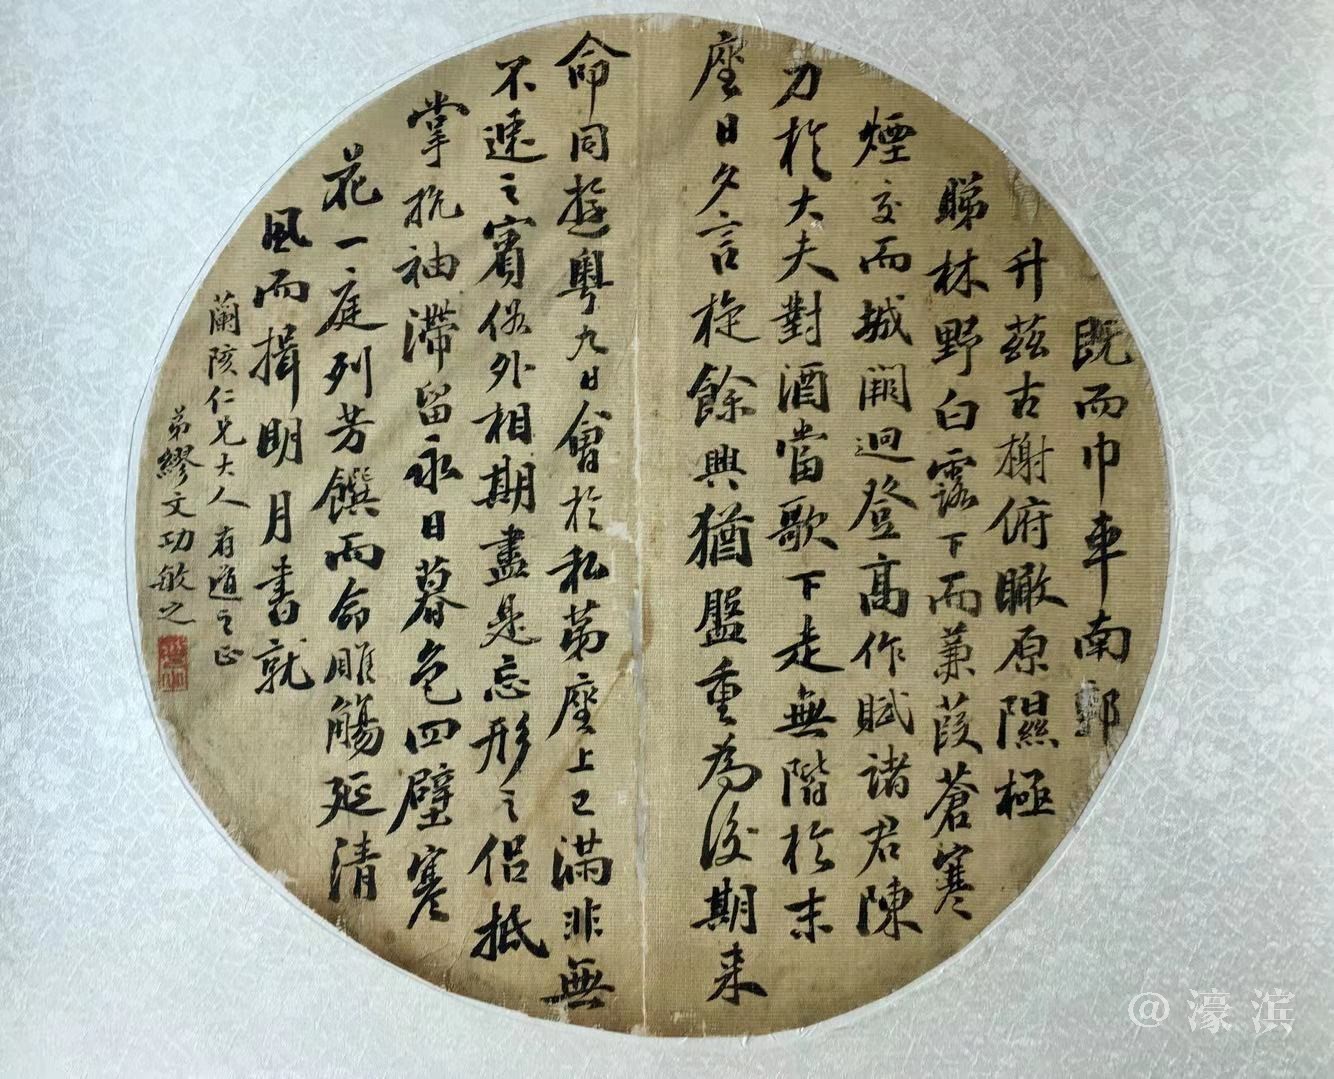 既而巾車南鄴
升茲古榭俯瞰原隰極
睇林野白露下而蒹葭蒼寒
煙交而城闕迥登高作賦諸君陳
力於大夫對酒當歌下走無階於末
座日夕言旋餘興猶盤重為後期来
命同遊粵九日會於私第座上已滿非無
不速之賓俗外相期盡是忘形之侶抵
掌抗袖滯留永日暮色四壁寒
花一庭列芳饌而命雕觴延清
風而揖明月書就
蘭陔仁兄大人有道之正
弟繆文功敏之
@濠滨